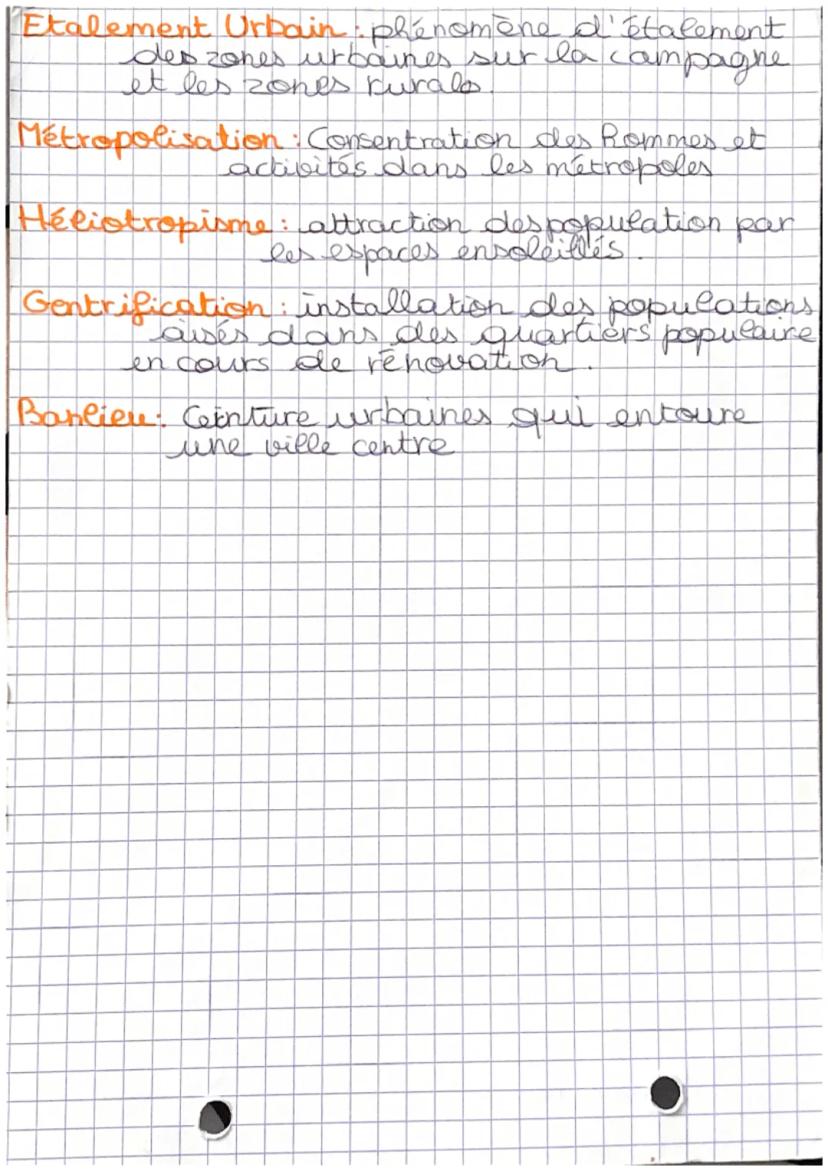 Etalement Urbain : phénomène d'étalement
des zones urbaines sur la campagne
et les zones rurals.
Métropolisation : Consentration des hommes et
activités dans les métropoles
Héliotropisme : attraction des population par
les espaces ensoleillés.
Gentrification : installation des populations
aisés dans des quartiers populaire
en cours de rénovation.
Banlieu : Ceinture urbaines qui entoure
une ville centre